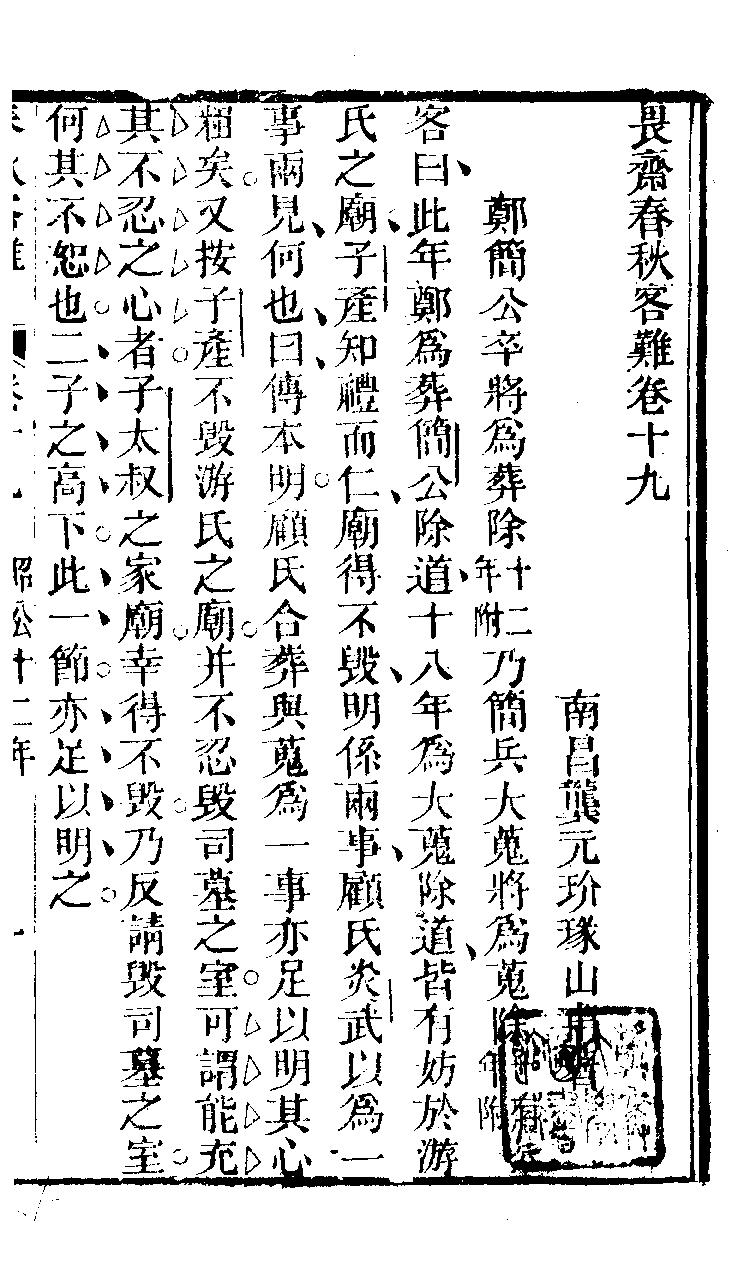 畏齋春秋客難卷十九
南昌龔元玠瑑山
鄭簡公卒將爲葬除十二年附乃簡兵大蒐將爲蒐除年附
客曰此年鄭爲葬簡公除道十八年爲大蒐除道皆有妨於游
氏之廟子產知禮而仁廟得不毀明係兩事顧氏炎武以爲一
事兩見何也曰傳本明顧氏合葬與蒐爲一事亦足以明其心
粗矣又按子產不毀游氏之廟并不忍毀司墓之室可謂能充
其不忍之心者子太叔之家廟幸得不毀乃反請毀司墓之室
何其不恕也二子之高下此一節亦足以明之
昭公十二年 一